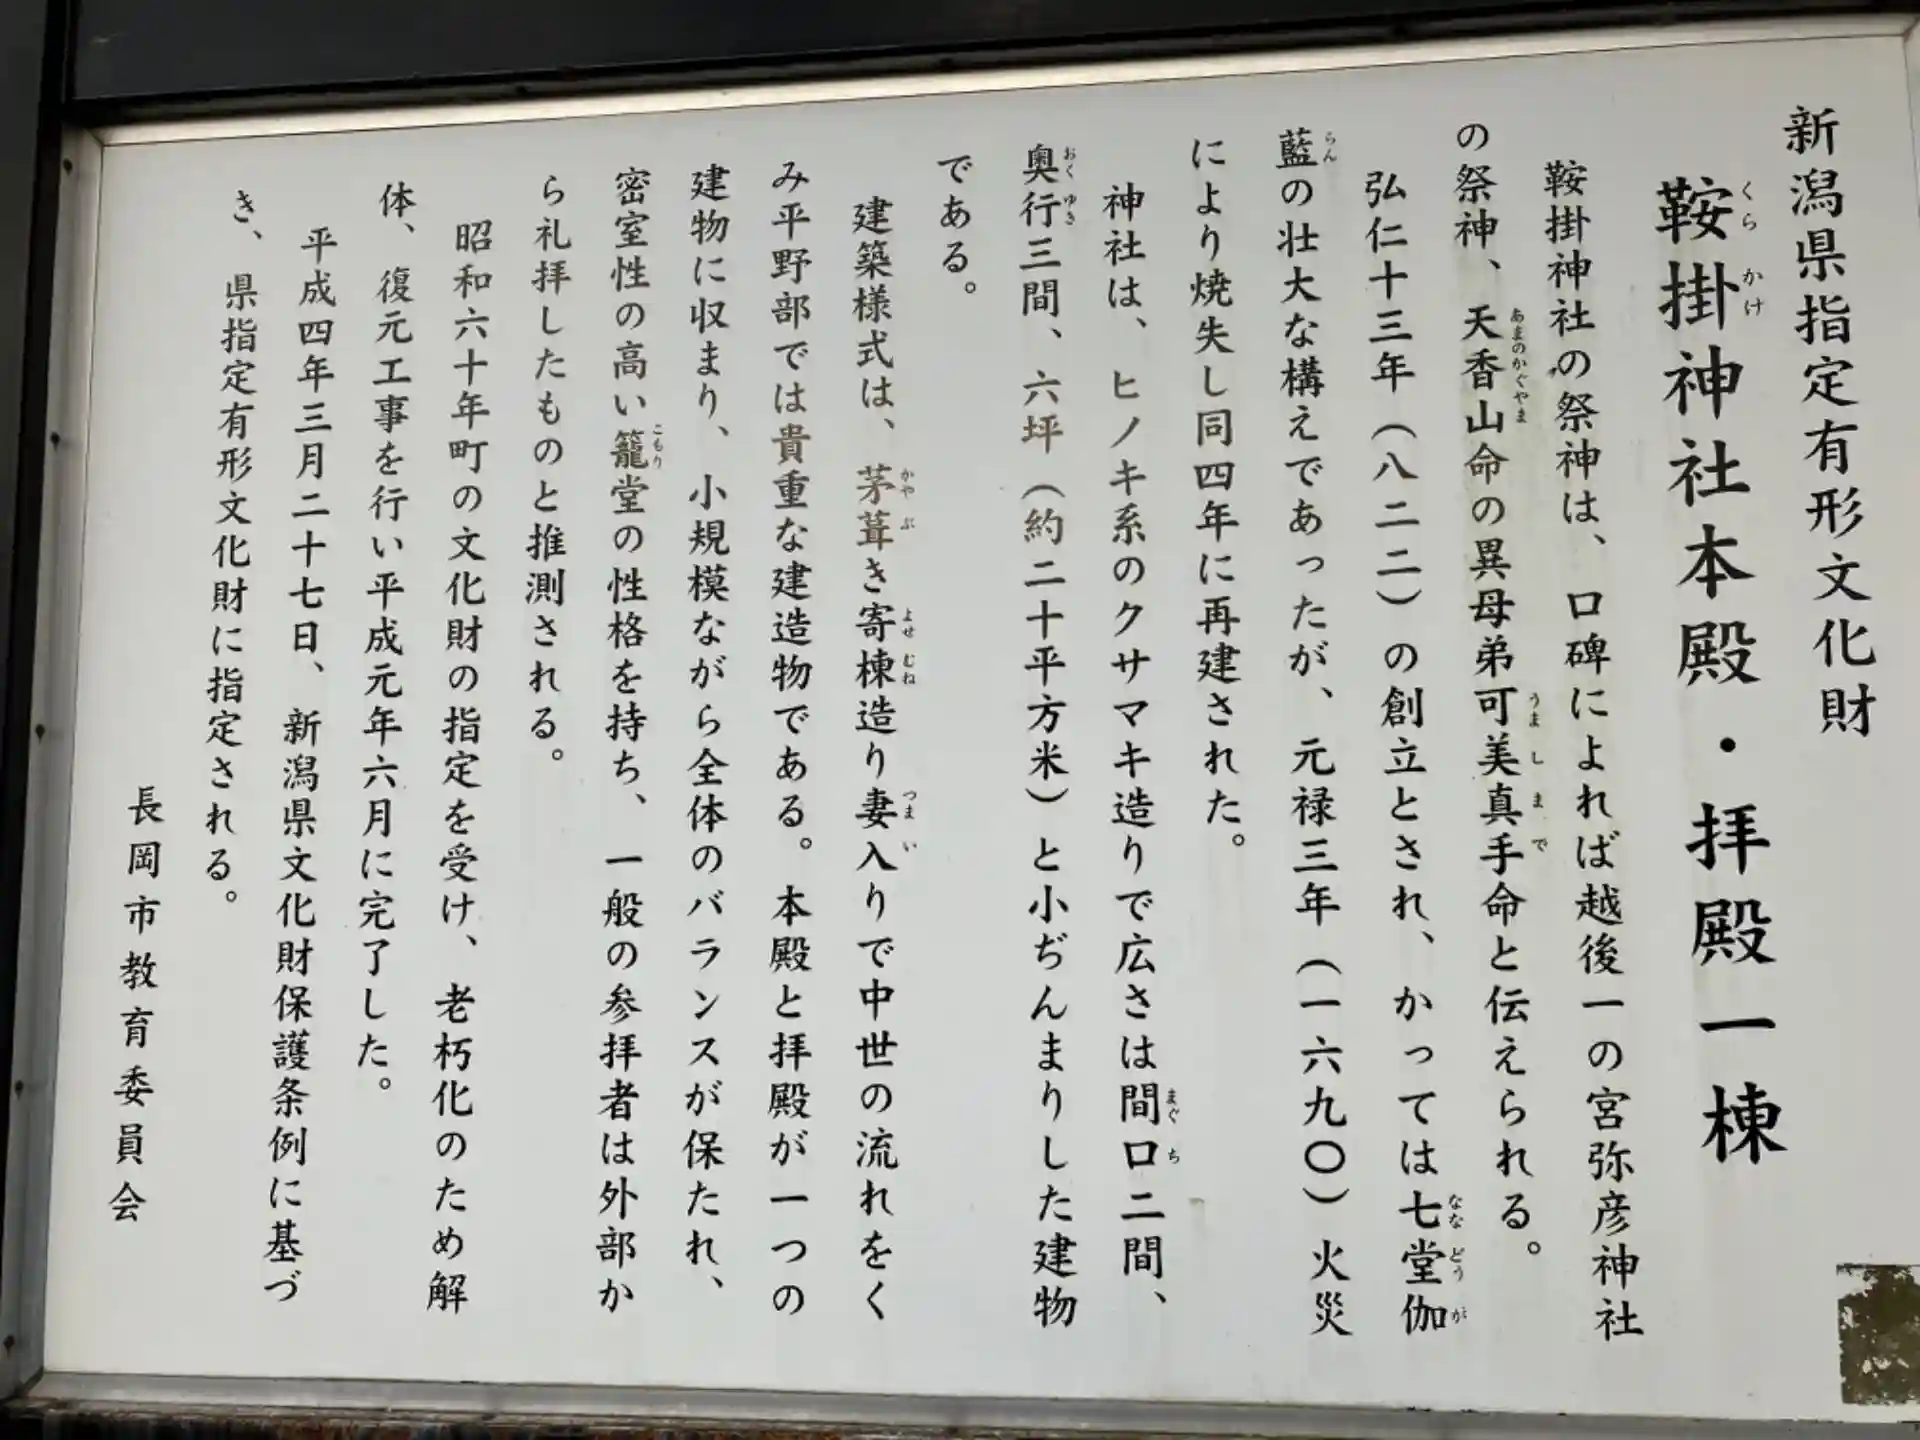 新潟県指定有形文化財
鞍掛神社本殿・拝殿一棟
くら かけ
鞍掛神社の祭神は、口碑によれば越後一の宮弥彦神社
の祭神、天香山命の異母弟可美真手命と伝えられる。
あまのかぐやま うま し ま で
弘仁十三年（八二二）の創立とされ、かっては七堂伽
なな どう が
藍の壮大な構えであったが、元禄三年（一六九〇）火災
らん
により焼失し同四年に再建された。
神社は、ヒノキ系のクサマキ造りで広さは間口二間、
まぐ ち
奥行三間、六坪（約二十平方米）と小ぢんまりした建物
おく ゆき
である。
建築様式は、茅葺き寄棟造り妻入りで中世の流れをく
かや ぶ よせ むね つま い
み平野部では貴重な建造物である。本殿と拝殿が一つの
建物に収まり、小規模ながら全体のバランスが保たれ、
密室性の高い籠堂の性格を持ち、一般の参拝者は外部か
こもり
ら礼拝したものと推測される。
昭和六十年町の文化財の指定を受け、老朽化のため解
体、復元工事を行い平成元年六月に完了した。
平成四年三月二十七日、新潟県文化財保護条例に基づ
き、県指定有形文化財に指定される。
長岡市教育委員会